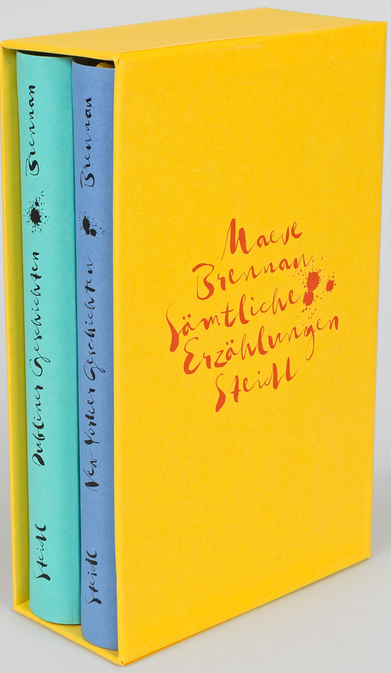 Brennan
Dubliner Geschichten
Steidl
Brennan
New Yorker Geschichten
Steidl
Maeve
Brennan
Sämtliche
Erzählungen
Steidl